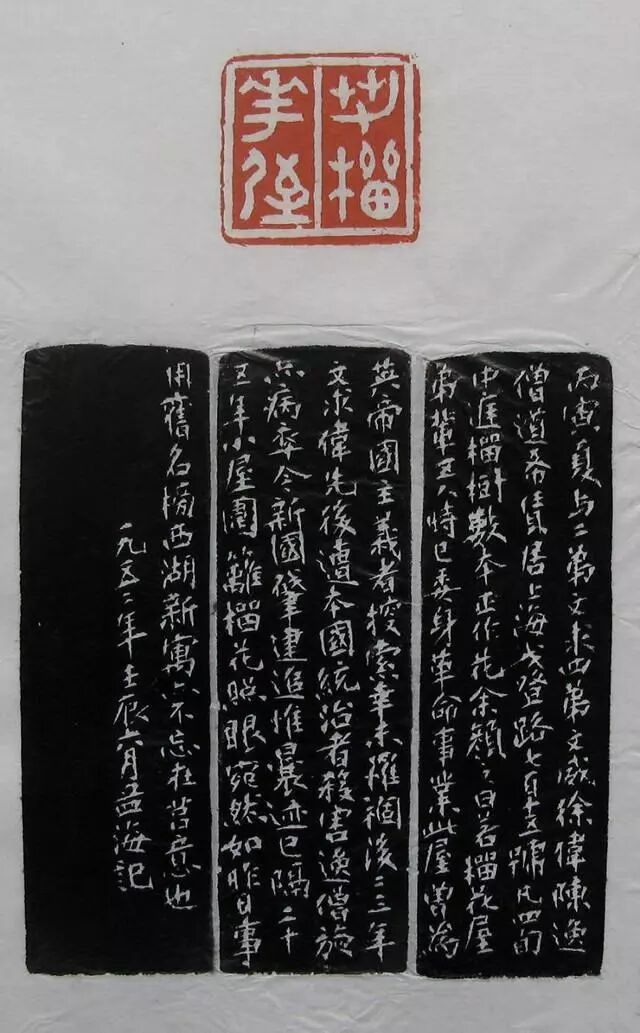 若榴
花屋
丙寅夏与二弟文求四弟文威徐偉陳逸
僧道希賃居上海戈登路七百十五號凡四間
中庭榴樹數本正作花余顏之曰若榴花屋
弟輩五人時已委身革命事業此屋曾為
英帝國主義者搜索幸未罹禍後二三年
文求偉先後遭本國統治者殺害逸僧旋
亦病卒今新國肇建追惟曩迹已隔二十
五年小屋圍籬榴花照眼宛然如昨日事
用舊名榜西湖新寓示不忘在莒意也
一九五二年壬辰六月孟海記